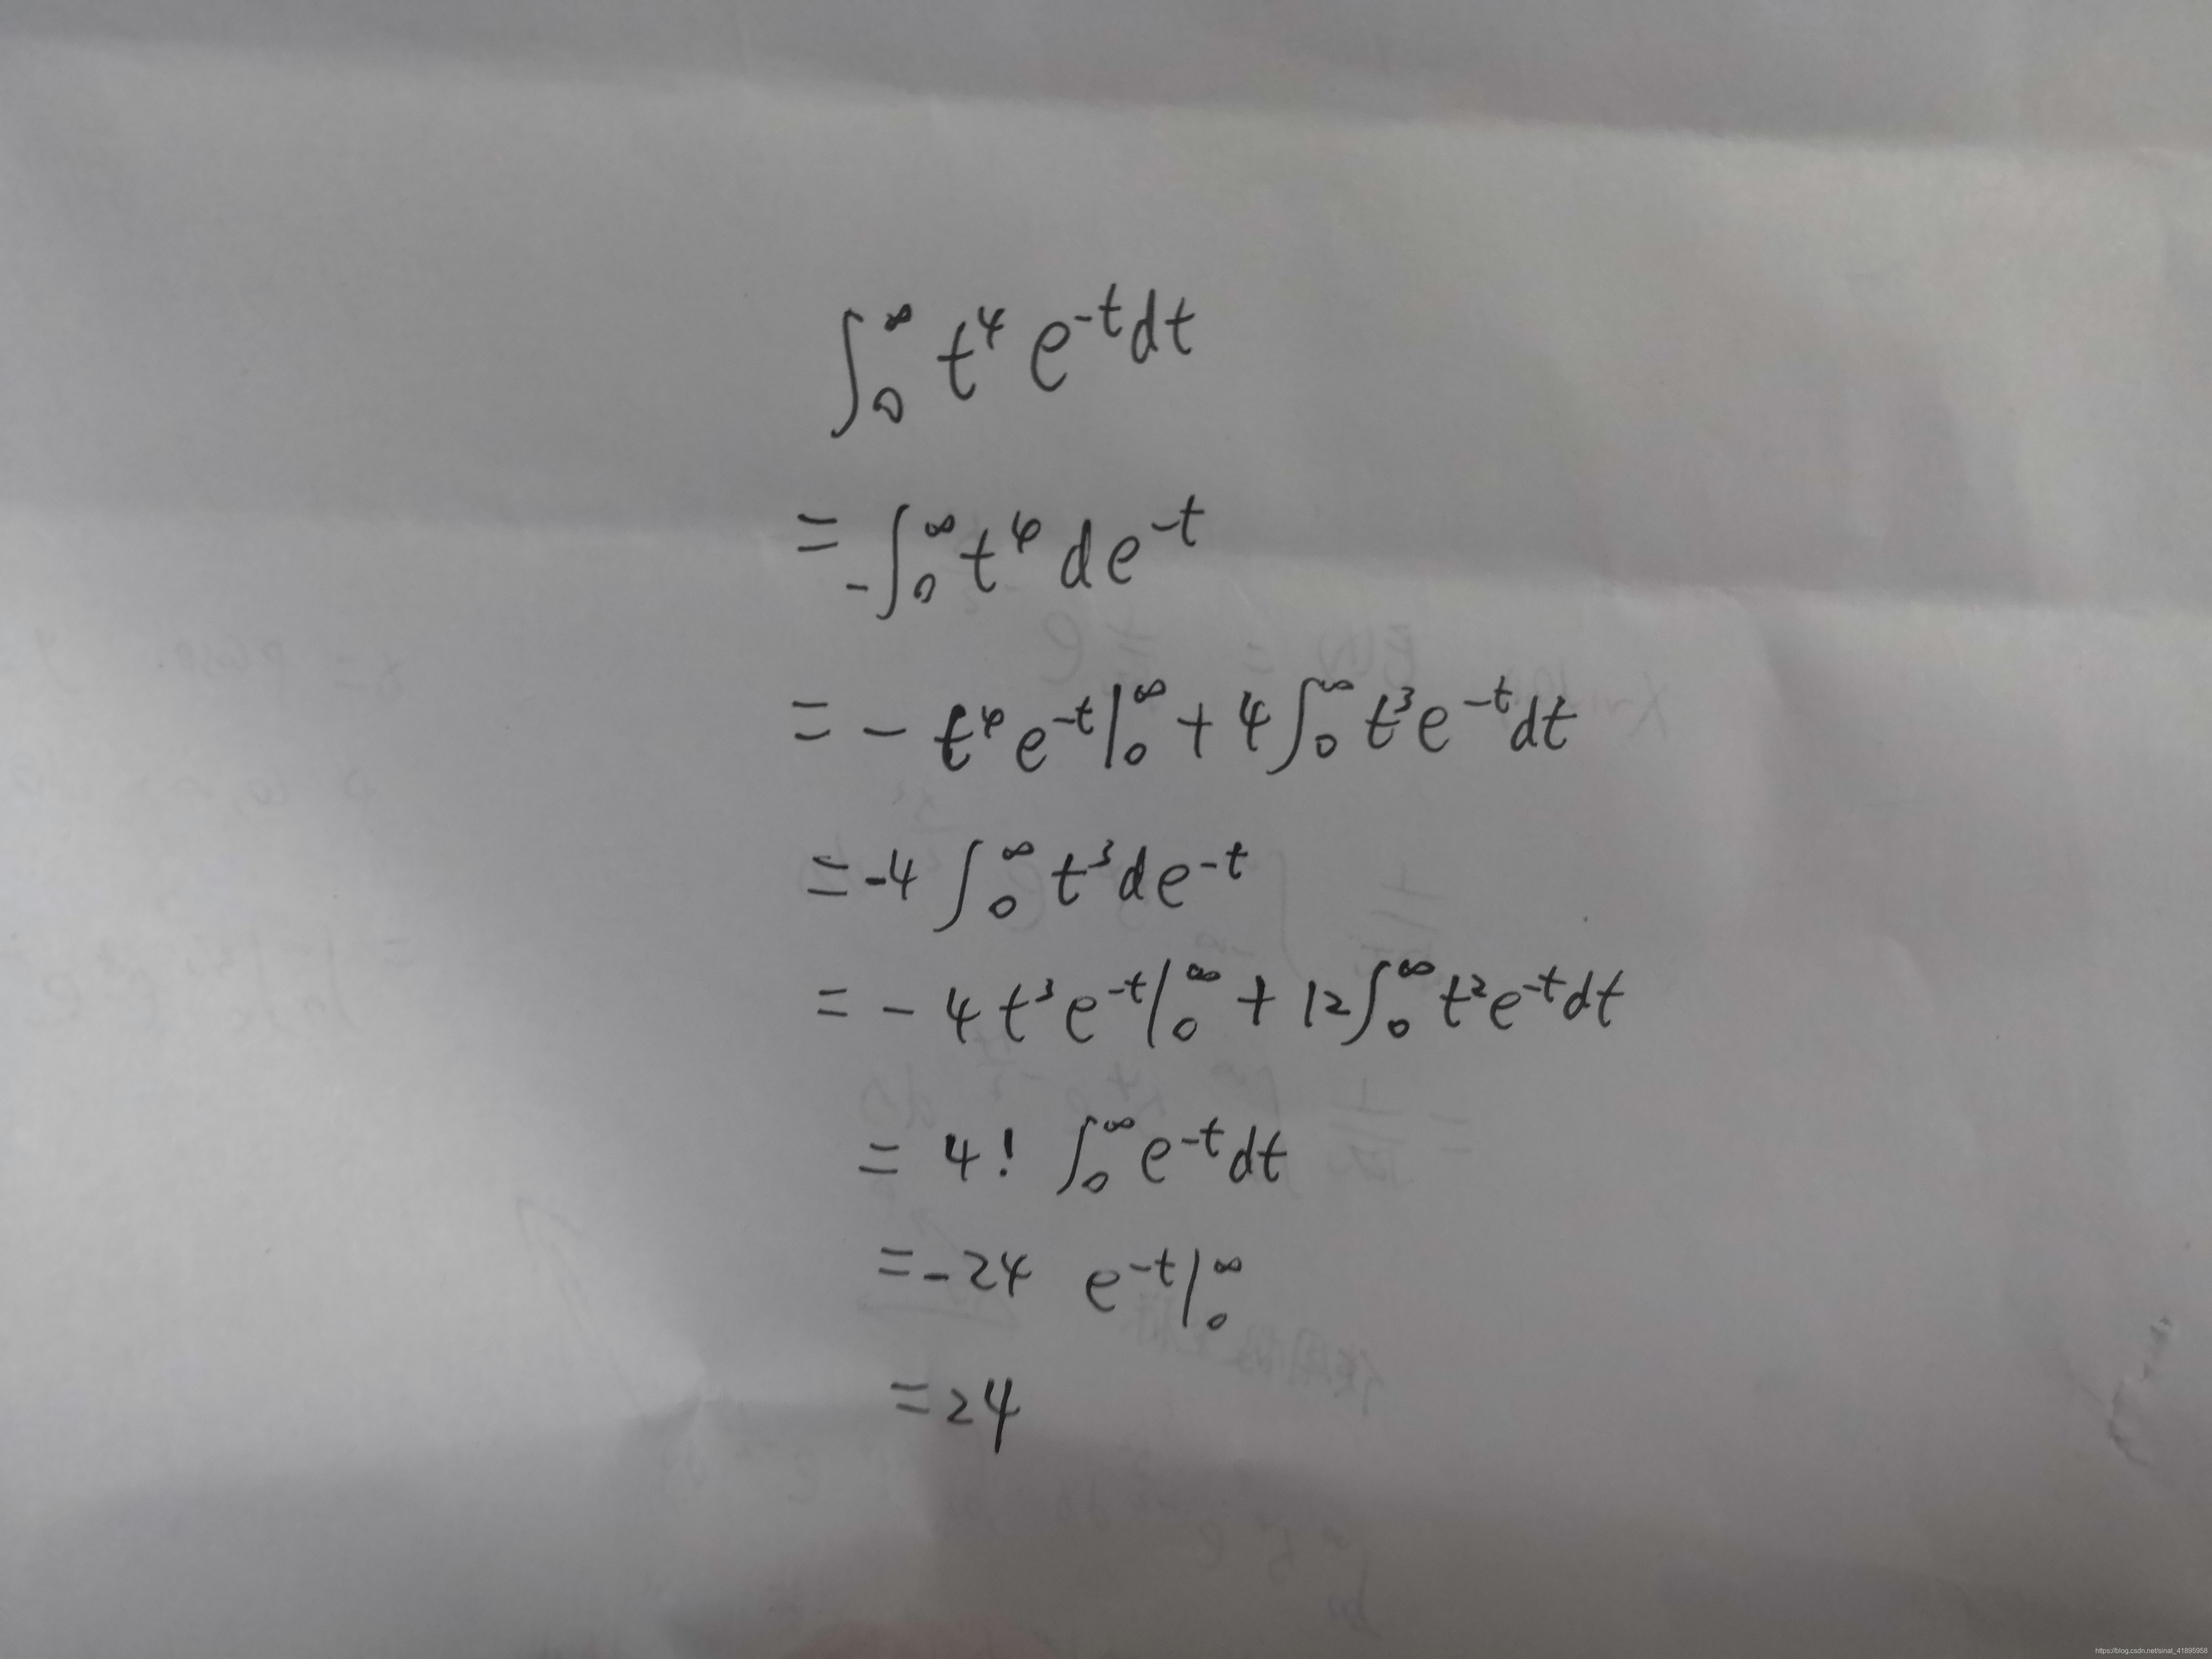 ∫₀^∞ t⁴ e^{-t} dt
= -∫₀^∞ t⁴ d e^{-t}
= - t⁴ e^{-t} |₀^∞ + 4 ∫₀^∞ t³ e^{-t} dt
= -4 ∫₀^∞ t³ d e^{-t}
= - 4 t³ e^{-t} |₀^∞ + 12 ∫₀^∞ t² e^{-t} dt
= 4! ∫₀^∞ e^{-t} dt
= -24 e^{-t} |₀^∞
= 24
https://blog.csdn.net/sinat_41895958